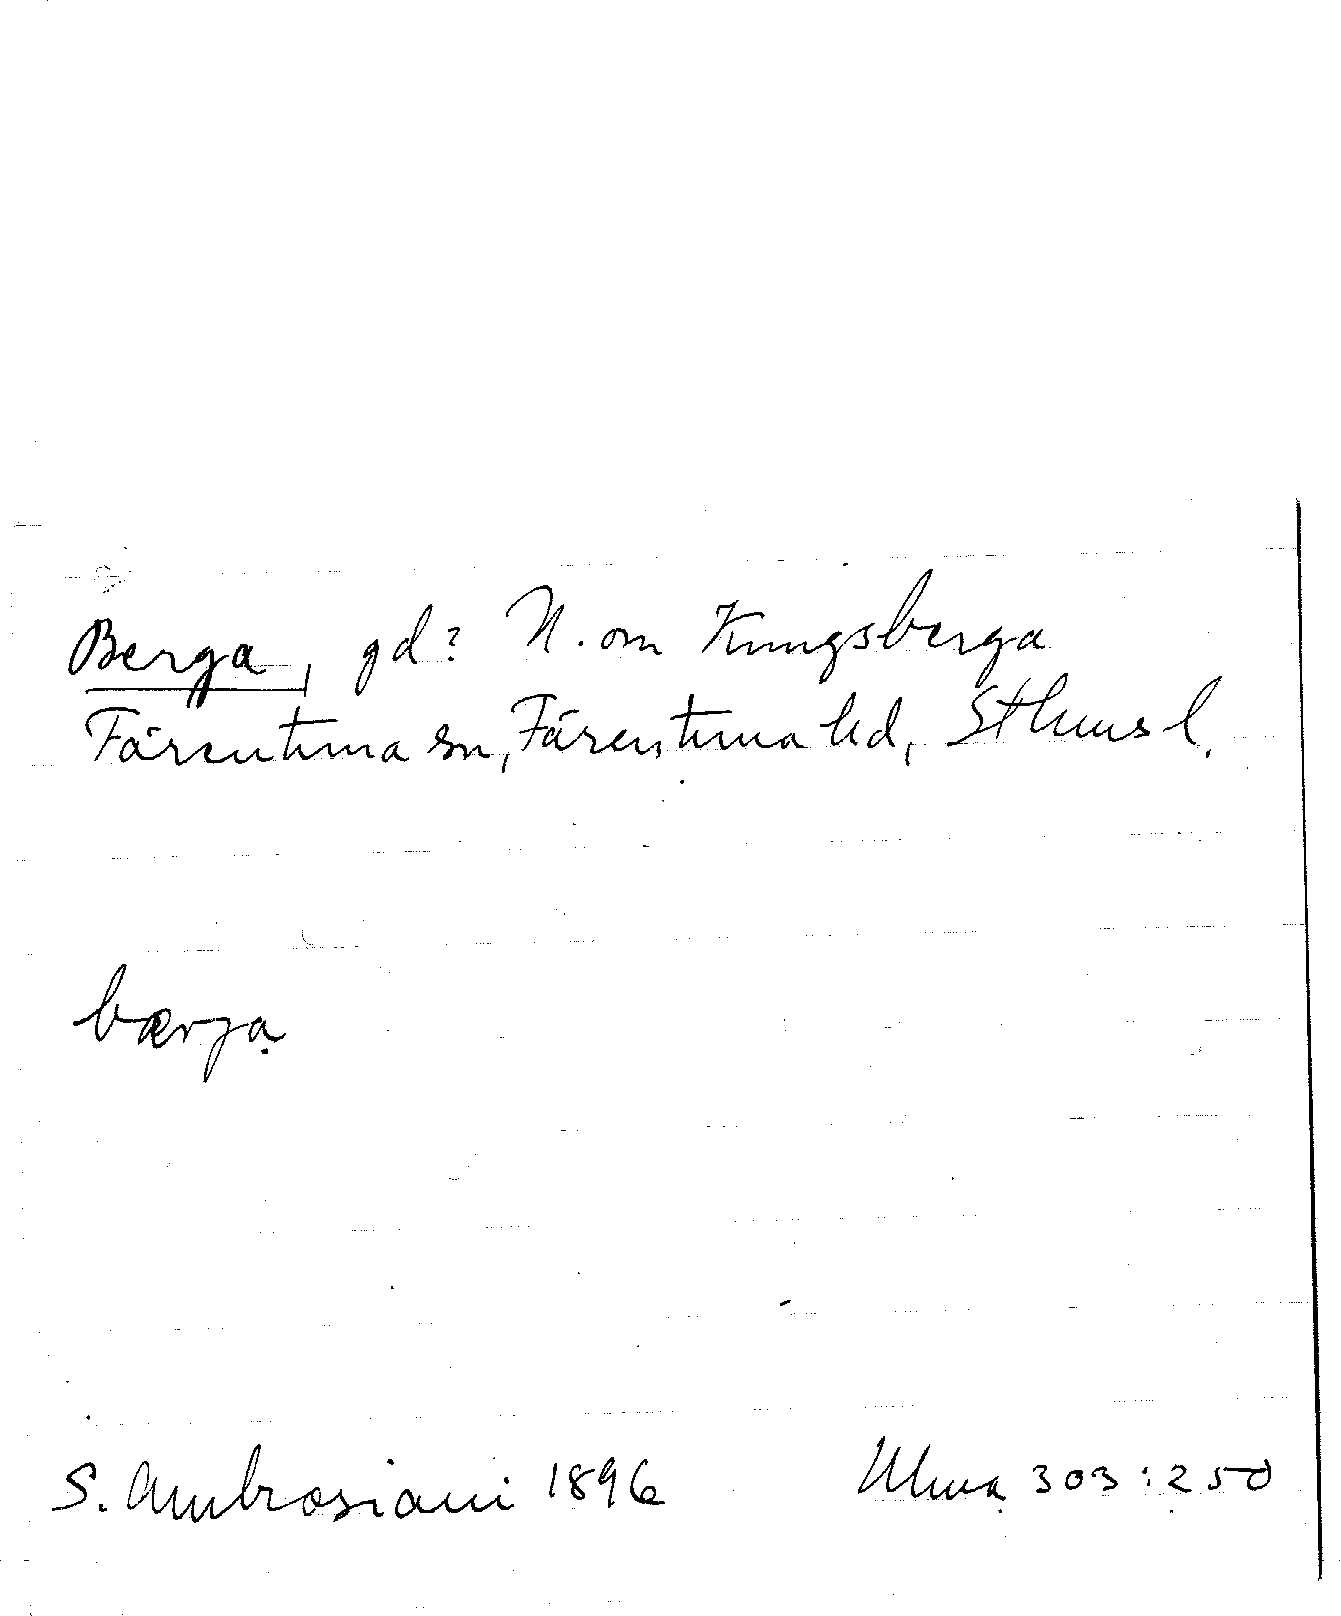 Berga, gd? N. om Kungsberga
Färentuna sn, Färentuna hd, Sthms l.
bærja̤
S. Ambrosiani 1896
Ulma 303:250